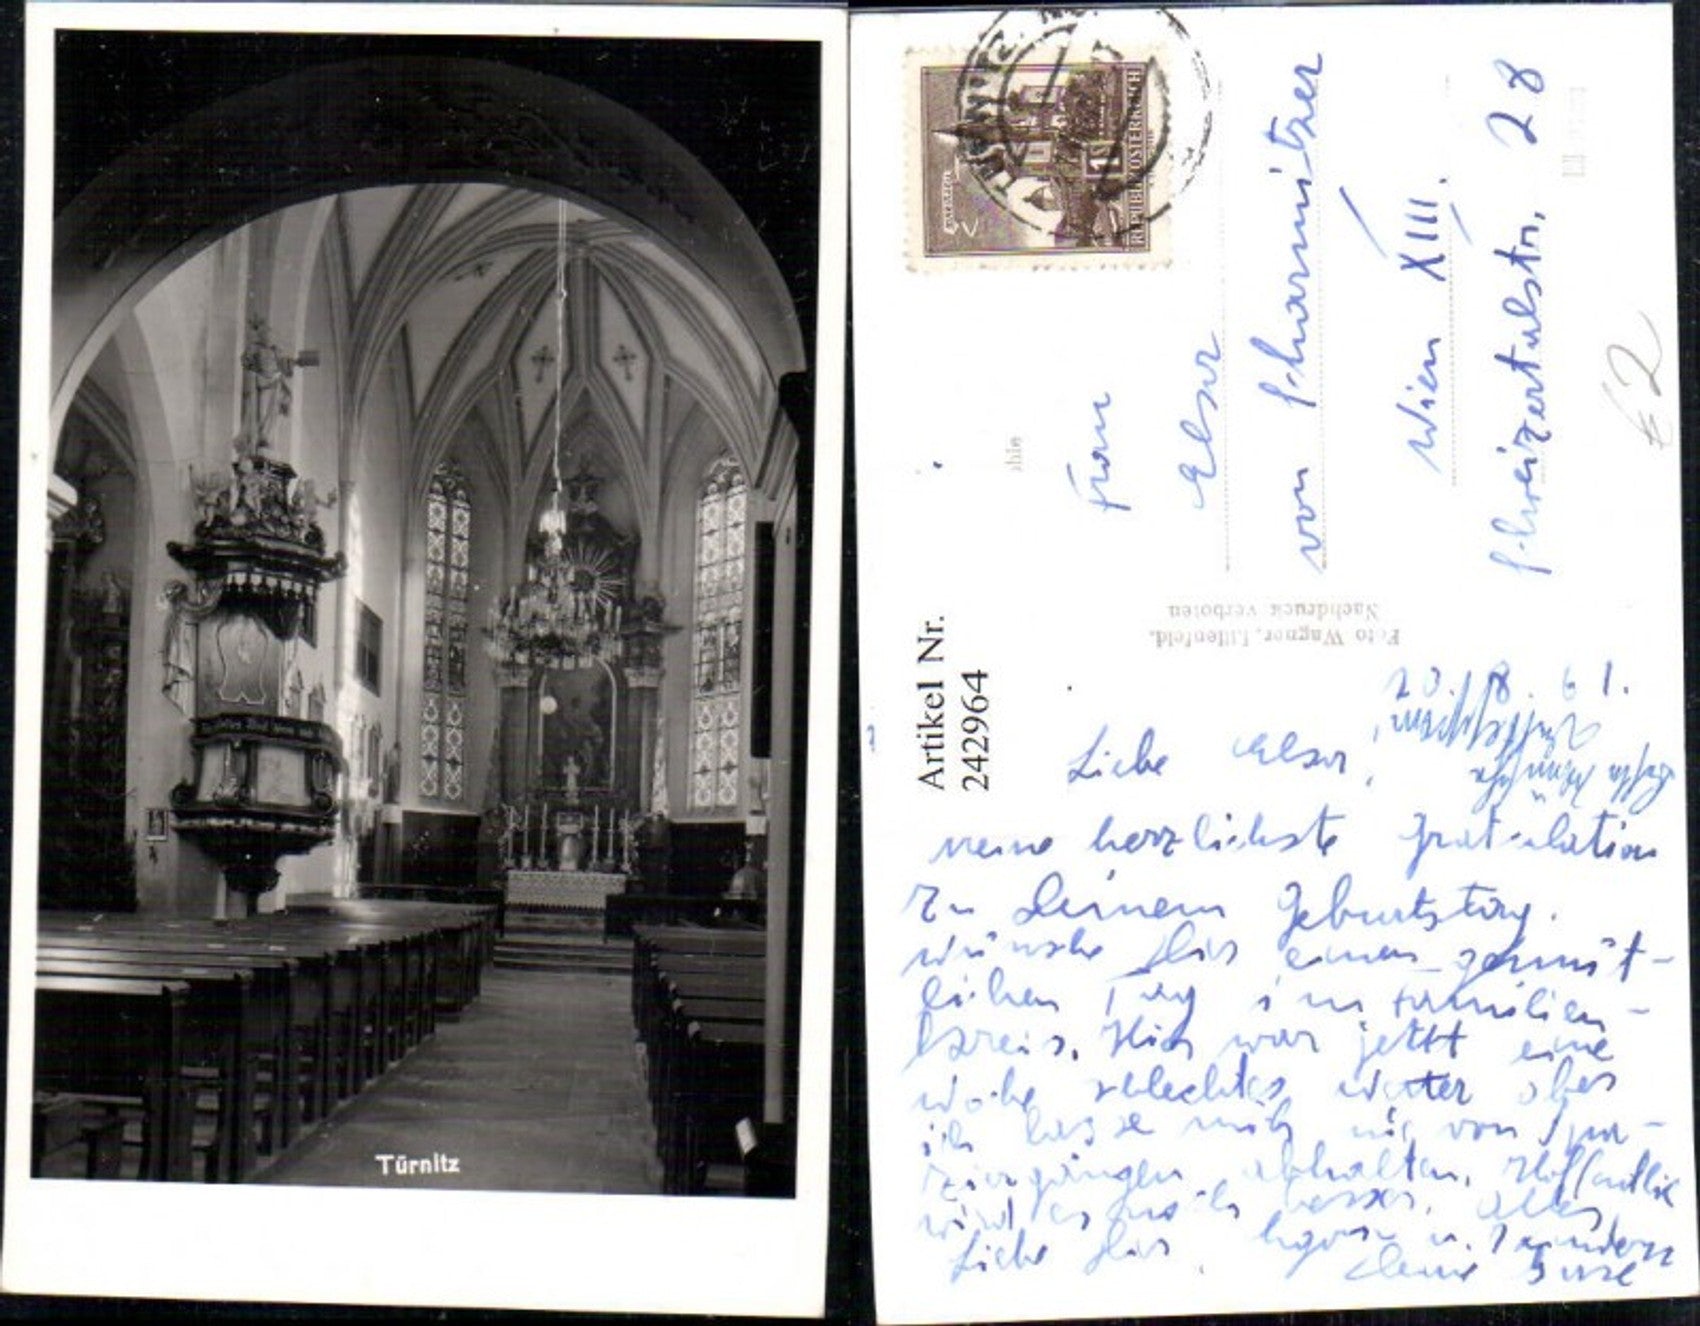 Türnitz
TÜRNITZ
REPUBLIK ÖSTERREICH
Frau
Elsa
von Scharmitzer
Wien XIII.
Schweizertalstr. 28
€ 2
Foto Wagner, Lilienfeld.
Nachdruck verboten
Artikel Nr.
242964
20. 8. 61.
Liebe Elsa,
meine herzlichste Gratulation
zu Deinem Geburtstag.
wünsche Dir einen gemüt-
lichen Tag im Familien-
kreis. Hier war jetzt eine
Woche schlechtes Wetter aber
ich lasse mich nie von Spa-
ziergängen abhalten. Hoffentlich
wird es noch besser. Alles
Liebe Dir, u.
Deine Suse